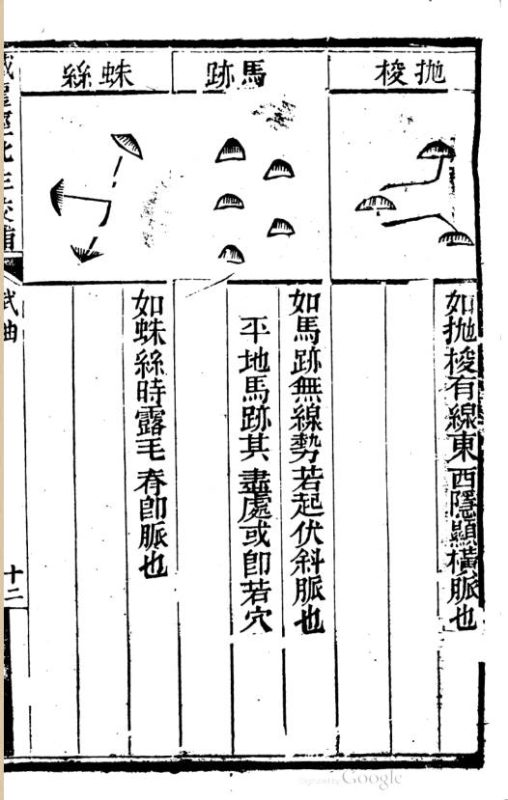 拋梭
如拋梭有線東西隱顯橫脈也
馬跡
如馬跡無線勢若起伏斜脈也
平地馬跡其盡處或即若穴
蛛絲
如蛛絲時露毛脊即脈也
武曲
十二
Google